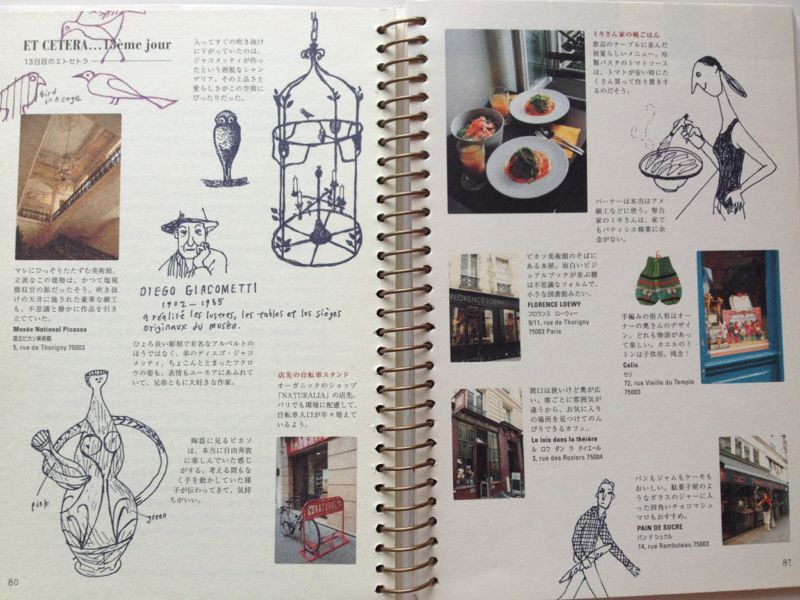 ET CETERA...13ème jour
13日目のエトセトラ
Bird
in a cage
入ってすぐの吹き抜け
に下がっていたのは、
ジャコメッティが作っ
たという洒脱なシャン
デリア。その上品さと
愛らしさがこの空間に
ぴったりだった。
マレにひっそりたたずむ美術館。
立派なこの建物は、かつて塩税
徴収官の館だったそう。吹き抜
けの天井に施された豪華な細工
も、不思議と静かに作品を引き
立てていた。
Musée National Picasso
国立ピカソ美術館
5, rue de Thorigny 75003
DIEGO GIACOMETTI
1902-1985
a réalisé les lustres, les tables et les sièges
originaux du musée.
ひょろ長い彫刻で有名なアルベルトの
ほうではなく、弟のディエゴ・ジャコ
メッティ。ちょこんととまったフクロ
ウの姿も、表情もユーモアにあふれて
いて、兄弟ともに大好きな作家。
店先の自転車スタンド
オーガニックのショップ
「NATURALIA」の店先。
パリでも環境に配慮して、
自転車人口が年々増えて
いるよう。
NATURALIA
陶器に見るピカソ
は、本当に自由奔放
に楽しんでいた感じ
がする。考える間もな
く手を動かしていた様
子が伝わってきて、気持
ちがいい。
pink
green
80
ミキさん家の晩ごはん
窓辺のテーブルに並んだ
初夏らしいメニュー。冷
製パスタのトマトソース
は、トマトが安い時にた
くさん買って作り置きす
るのだそう。
バーナーは本当はアメ
細工などに使う。努力
家のミキさんは、家で
もパティシエ修業に余
念がない。
ピカソ美術館のそばに
ある本屋。面白いビジ
ュアルブックが並ぶ棚
は不思議なフォルムで、
小さな図書館みたい。
FLORENCE LOEWY
フロランス ローウィー
9/11, rue de Thorigny
75003 Paris
FLORENCE LOEWY
手編みの指人形はオー
ナーの奥さんのデザイ
ン。どれも物語があっ
て楽しい。カエルのミ
トンは子供用。残念！
Celis
セリ
72, rue Vieille du Temple
75003
間口は狭いけど奥が広
い。席ごとに雰囲気が
違うから、お気に入り
の場所を見つけてのん
びりできるカフェ。
Le lois dans la théière
ル ロワ ダン ラ テイエール
3, rue des Rosiers 75004
パンもジャムもケーキも
おいしい。駄菓子屋のよ
うなガラスのジャーに入
った四角いチョコマシュ
マロもおすすめ。
PAIN DE SUCRE
パン ド シュクル
14, rue Rambuteau 75003
81